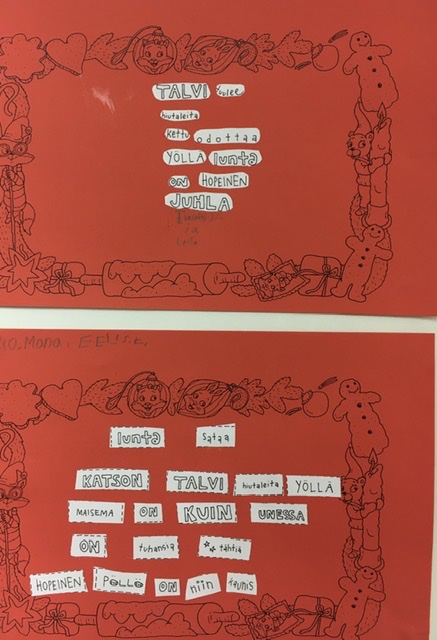 TALVI tulee
hiutaleita
kettu odottaa
YÖLLÄ lunta
ON HOPEINEN
JUHLA
Mona. EELIS.E.
lunta sataa
KATSON TALVI hiutaleita YÖLLÄ
MAISEMA ON KUIN UNESSA
ON tuhansia tähtiä
HOPEINEN PELLE ON niin kaunis